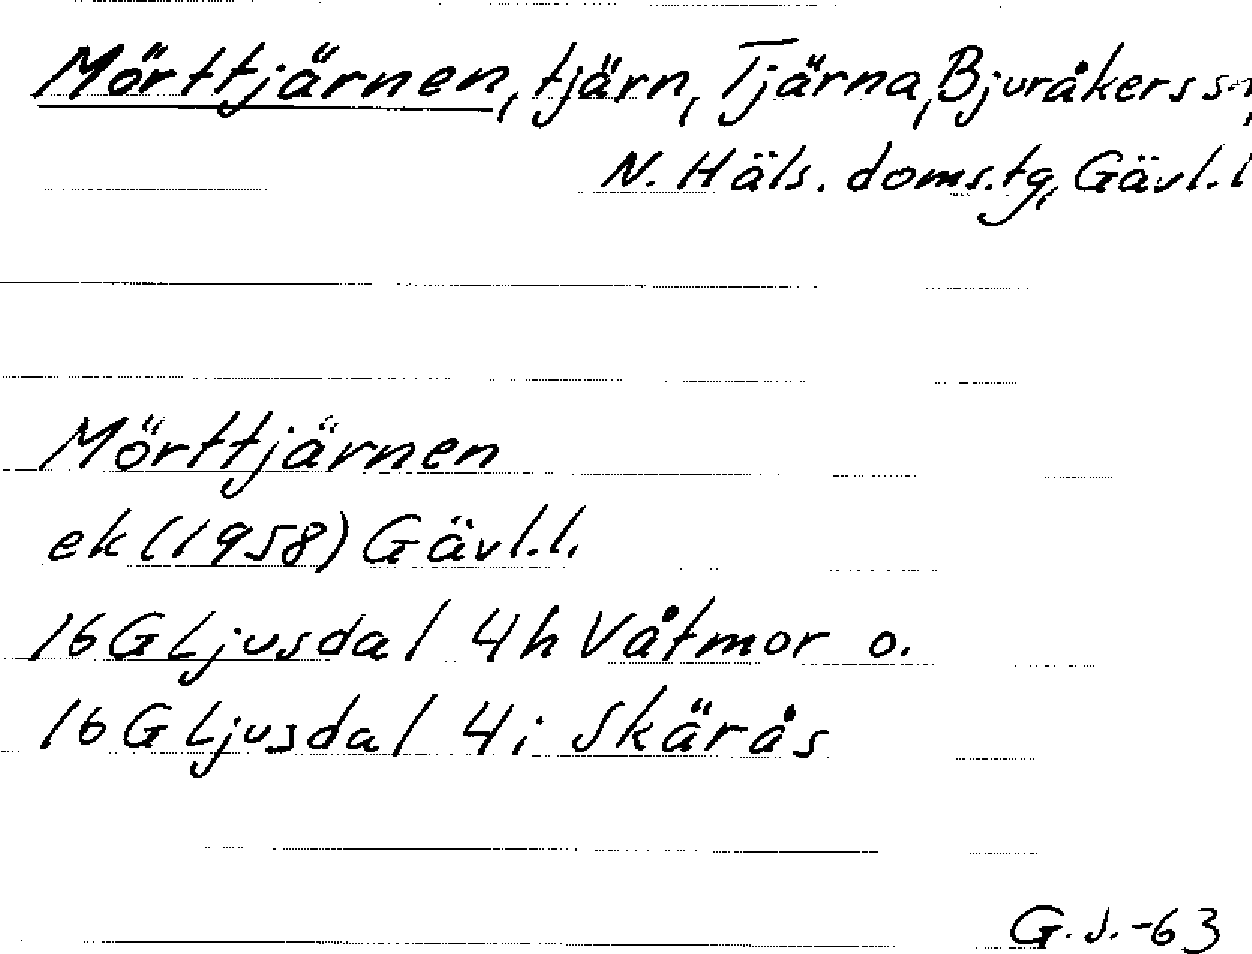 Mörttjärnen, tjärn, Tjärna, Bjuråkers sn,
N. Häls. doms.tg, Gävl.l
Mörttjärnen
ek (1958) Gävl.l.
16 G Ljusdal 4h Våtmor o.
16 G Ljusdal 4i Skärås
G.J.-63